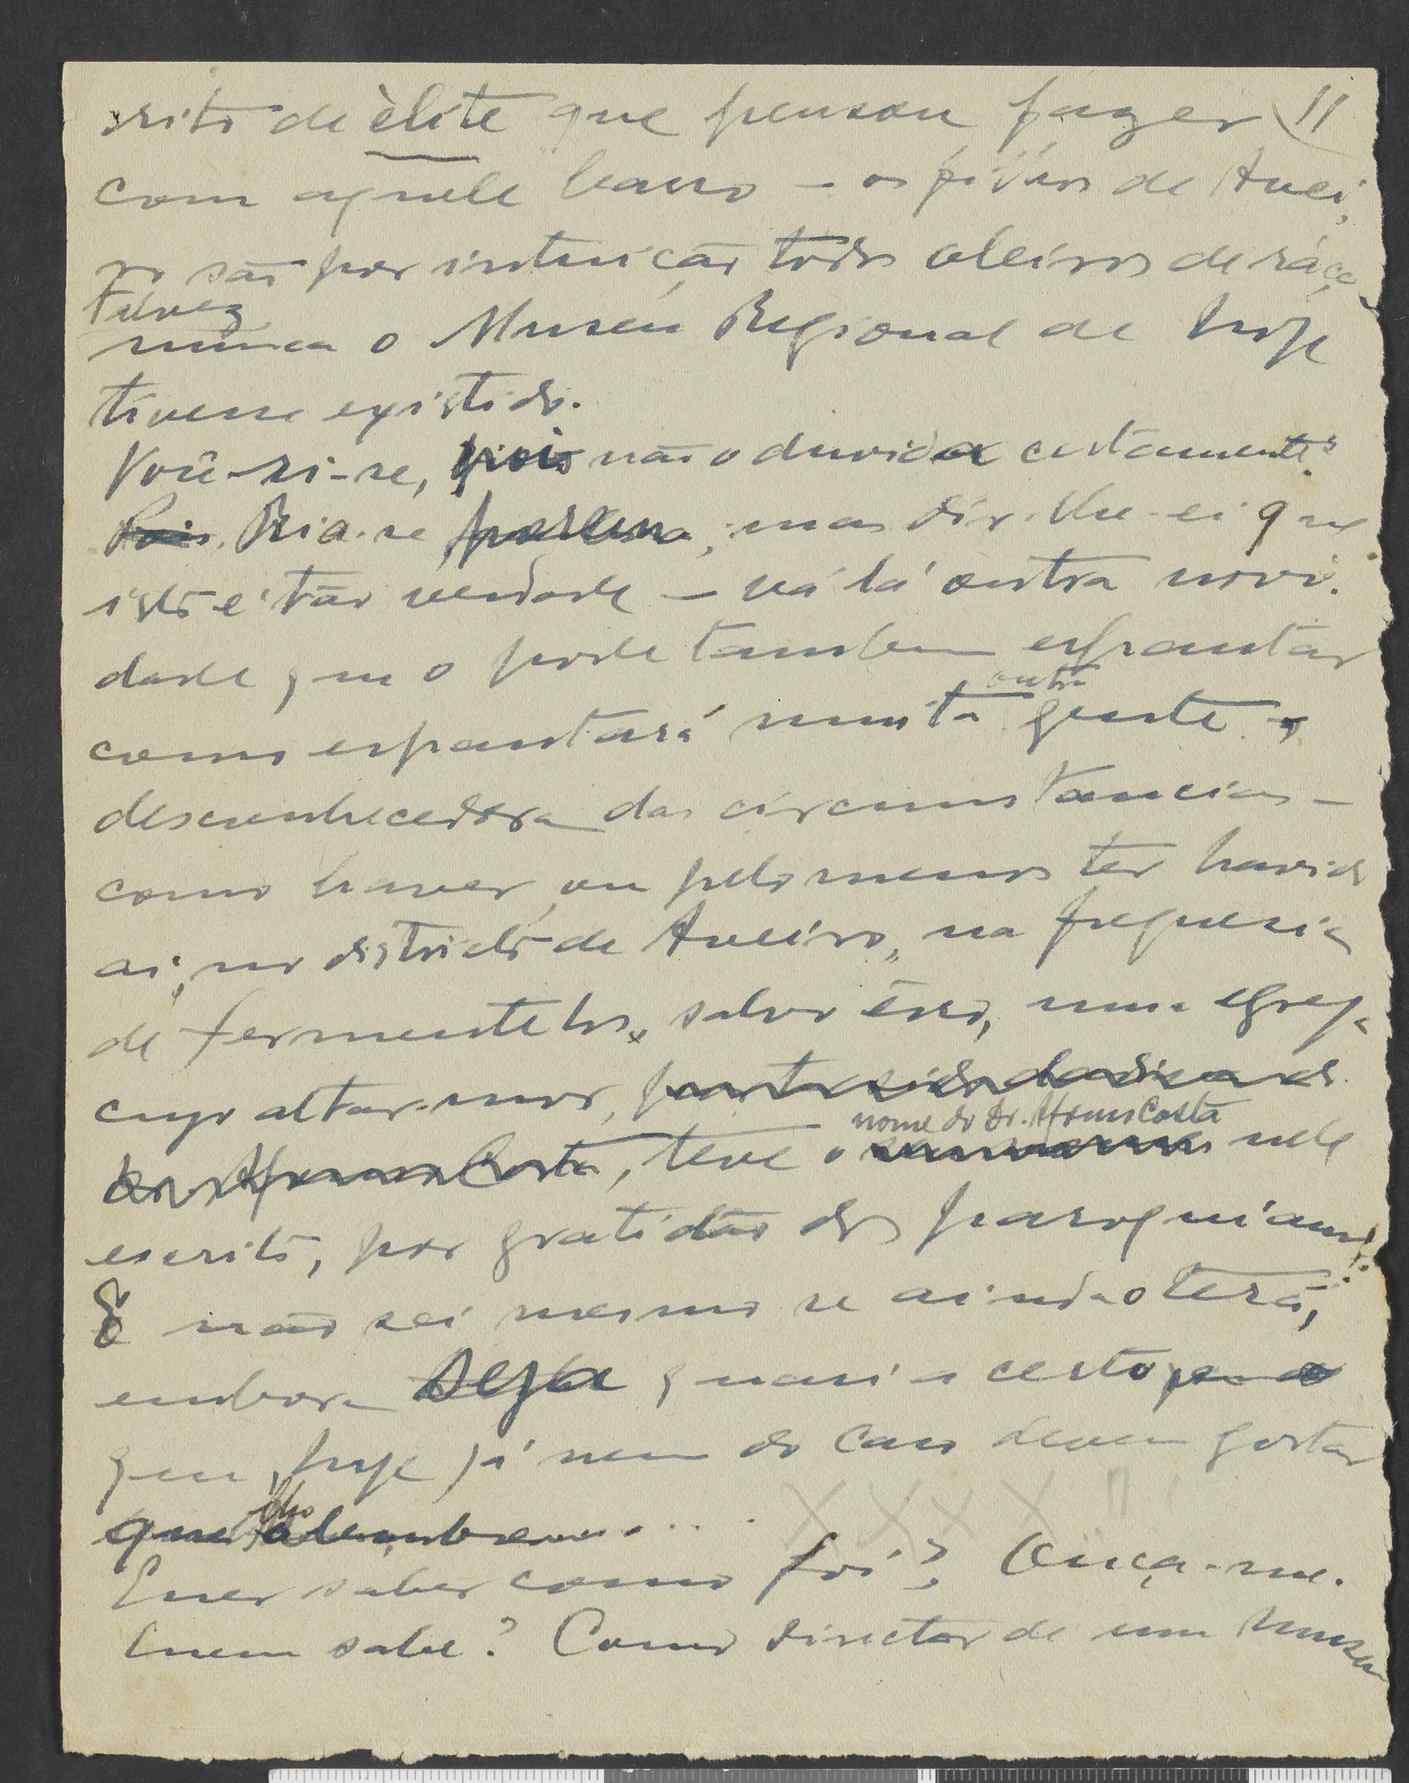 rito de èlite que pensou fazer 11
com aquele barro — os pívios de Avei,
ro são por intuição todos oleiros de ráça,
Talvez
nunca o Museu Regional de hoje
tivesse existido.
Você-ri-se, pois não o duvida certamente?
Pois. Ria-se, mas dir-lhe-ei que
isto é tão verdade — vá lá outra novi-
dade que o pode tambem espantar
outra
como espantará muita gente
desconhecedora das circumstancias —
como haver, ou pelo menos ter havido
ai, no districto de Aveiro, na freguesia
de Fermentelos, salvo êrro, uma egreja
cujo altar-mor,
nome do Dr. Afonso Costa
Dr. Afonso Costa, teve o nele
escrito, por gratidão dos paroquianos!
E não sei mesmo se ainda o terá,
embora seja quasi certo
que hoje já nem do caso devem gostar
lho
que alembrem....
XXXX
Quer saber como foi? Ouça-me.
Quem sabe? Como director de um Museu